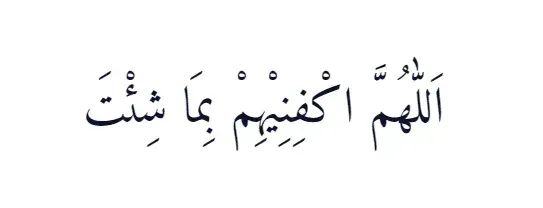 اَللّٰهُمَّ اكْفِنِيْهِمْ بِمَا شِئْتَ